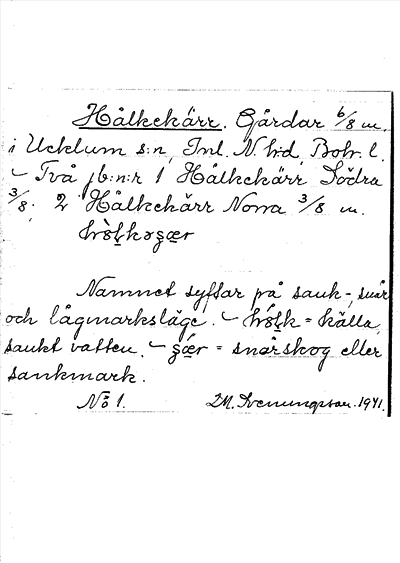 Hålkekärr. Gårdar 6/8 m.
i Ucklum s:n, Inl. N. h:d, Boh. l.
– Två jb:n:r 1 Hålkekärr Södra
3/8; 2 Hålkekärr Norra 3/8 m.
Namnet syftar på sank-, snår
och lågmarksläge. – = källa,
sankt vatten. – = snårskog eller
sankmark.
No 1. M. Svenungsson. 1941.